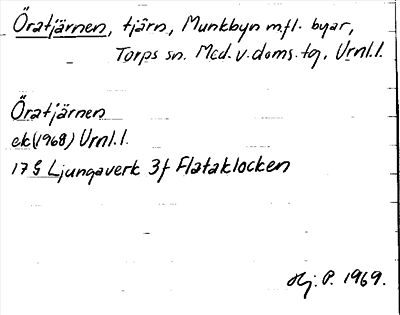 Öratjärnen, tjärn, Munkbyn m.fl. byar,
Torps sn. Med. v. doms. tg, Vrnl.l.
Öratjärnen
ek(1968) Vrnl.l.
17 G Ljungaverk 3f Flataklocken
Hj. P. 1969.